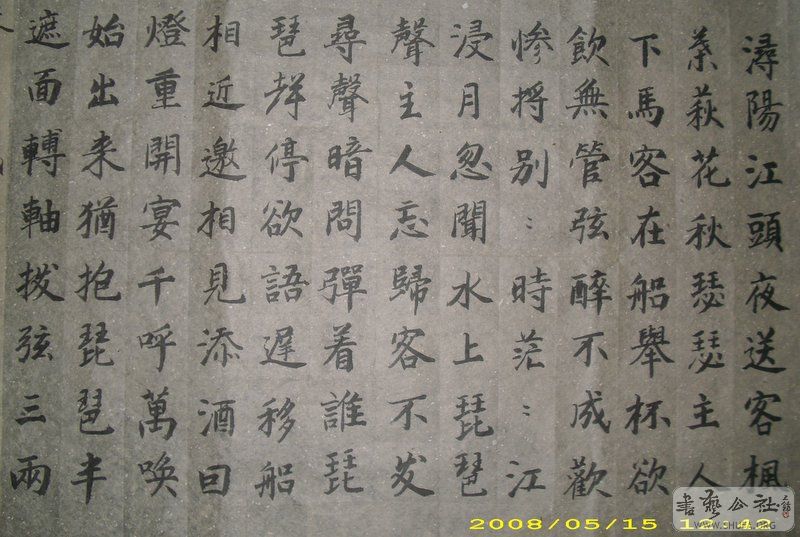 潯陽江頭夜送客楓
葉荻花秋瑟瑟主人
下馬客在船舉杯欲
飲無管弦醉不成歡
慘將别：時茫：江
浸月忽聞水上琵琶
聲主人忘歸客不发
尋聲暗問彈着誰琵
琶声停欲語遲移船
相近邀相見添酒回
燈重開宴千呼萬喚
始出来猶抱琵琶半
遮面轉軸拨弦三兩
書藝公社
WWW.SHUFA.ORG
2008/05/15